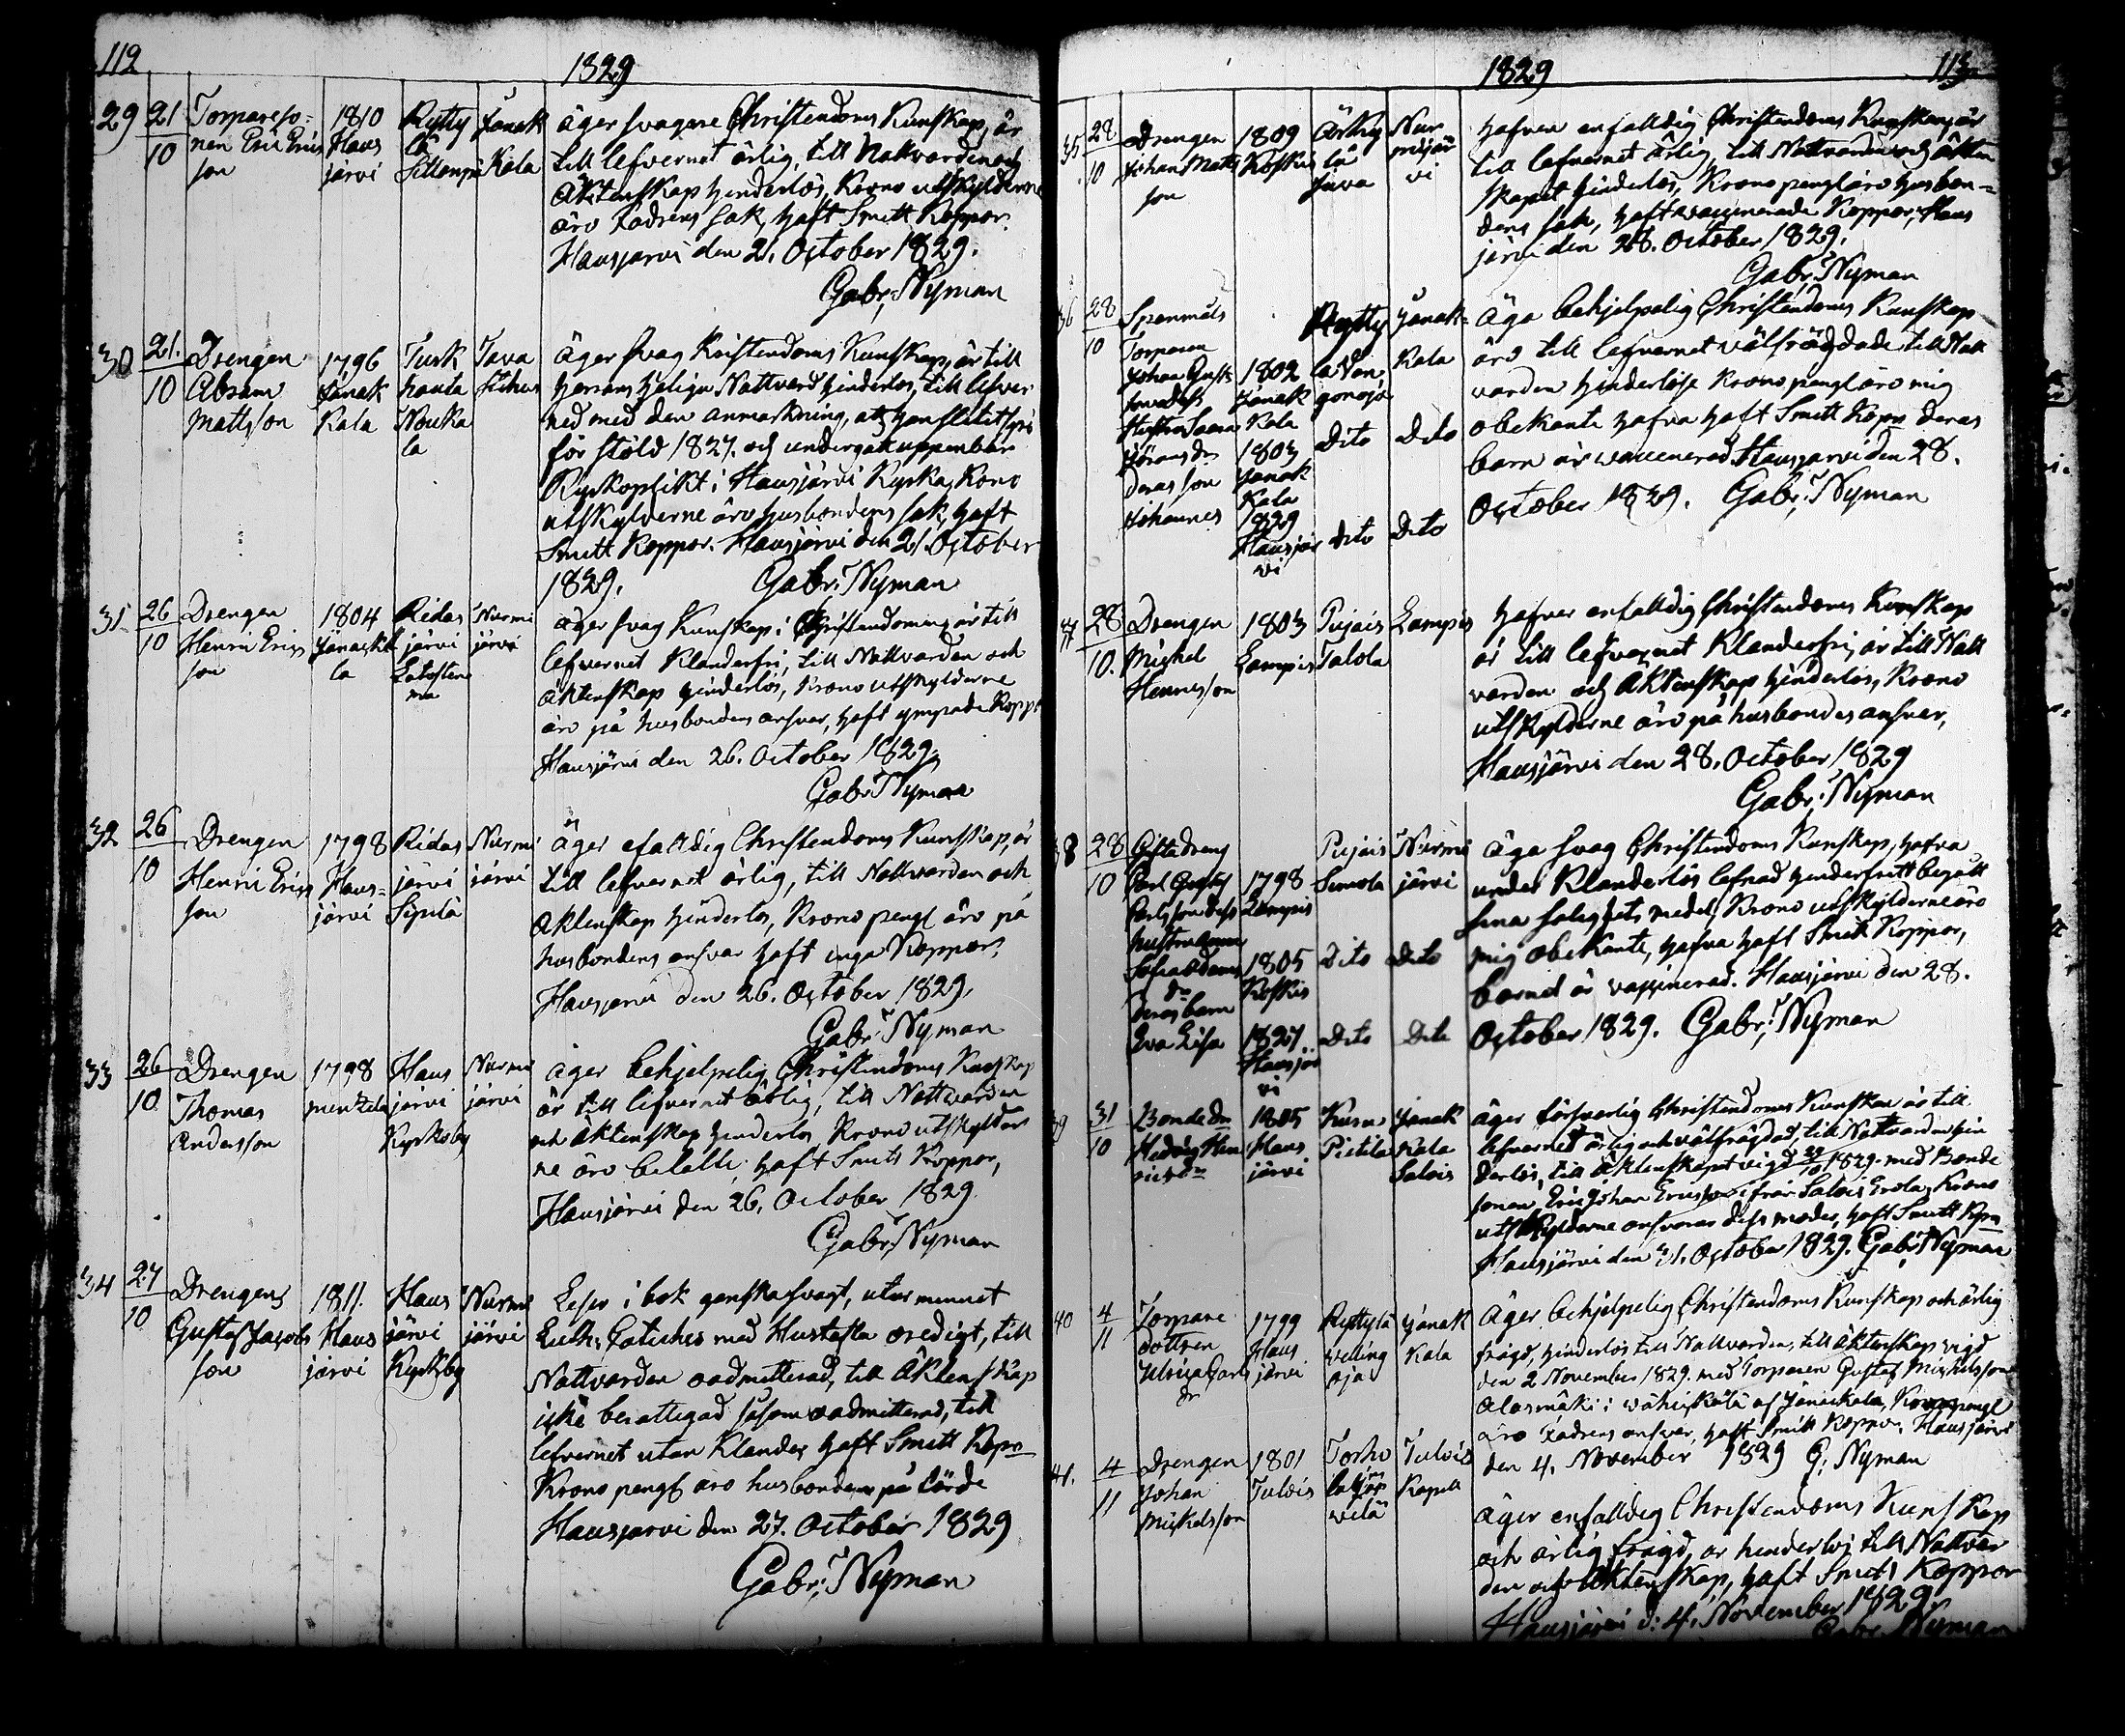 112
1829
29 21/10 Torpareso-
nen Eric Erics
son
1810
Haus
järvi
Rytty
lä
Janak
Kala
äger svagare Christendoms Kunskap, är
till lefvernet ärlig, till Nattvarden och
Äktenskap hinderlös, Krono utskylderne
äro Fadrens sak, haft Smitt Koppor.
Hausjärvi den 21. October 1829.
Gabr: Nyman
30 21./10 Drengen
Abram
Mattsson
1796
Janak
Kala
Turk
hauta
Tava
stehus
äger svag Kristendoms Kunskap, är till
Herrans Heliga Nattvard hinderlös, till lefver
ned med den anmarkning, at han slitit spö
för stöld 1827. och undergåt uppenbar
Kyrkoplikt i Hausjärvi Kyrka, Krono
utskylderne äro husbondens sak, haft
Smitt Koppor. Hausjärvi den 21. October
1829. Gabr: Nyman
31 26/10 Drengen
Henric Erics
son
1804
Janackk
la
Ridas
järvi
Nurmi
järvi
äger svag Kunskap i Christendomen, är till
lefvernet Klanderfri, till Nattvarden och
äktenskap hinderlös, Krono utskylderne
äro på husbondens ansvar, haft ympade Kopp:
Hausjärvi den 26. October 1829.
Gabr: Nyman
32 26/10 Drengen
Henric Erics
son
1798
Haus-
järvi
Ridas
järvi
Sipilä
Nurmi
järvi
äger efalldig Christendoms Kunskap, är
till lefvernet ärlig, till Nattvarden och
äktenskap hinderlös, Krono pengl äro på
husbondens ansvar haft inga Koppor.
Hausjärvi den 26. October 1829.
Gabr: Nyman
33 26/10 Drengen
Thomas
Andersson
1798
Haus
järvi
Kyrkoby
Nurmi
järvi
äger behjelpelig Christendoms Kunskap
är till lefvernet ärlig, till Nattvarden
och Äktenskap hinderlös, Krono utskylder
ne äro betalte, haft Smitt Koppor,
Hausjärvi den 26. October 1829
Gabr: Nyman
34 27/10 Drengen
Gustaf Jacobs
son
1811.
Haus
järvi
Haus
järvi
Kyrkby
Nurmi
järvi
Läser i bok ganska svagt, utur minnet
Luth: Catiches med Hustafla oredigt, till
Nattvarden oadmitterad, till Äktenskap
icke berättigad såsom oadmitterad, till
lefvernet utan Klander, haft Smitt Kopp
Krono pengl äro husbonden på börde
Hausjarvi den 27. October 1829
Gabr: Nyman
1829
113
35 28/10 Drengen
Johan Matts
son
1809
Koskis
Nur
mijär
vi
Hafver enfalldig Christendoms Kunskap, är
till lefvernet ärlig, till Nattvarden och äkten
skapet hinderlös, Krono pengl äro husbon-
dens sak, haft vaccinerade Koppor, Haus
järvi den 28. October 1829.
Gabr: Nyman
36 28/10 Spanmåls
Torparen
Johan Gust:
Hustru
deras son
Johannes
1802
Janak
Kala
1803
Janak
Kala
1829
Hausjär
vi
Rytty
Janak-
Kala
Dito Dito
Dito Dito
Äga behjelpelig Christendoms Kunskap
äro till lefvernet välfrägdade, till Natt
varden hinderlöse Krono pengl äro mig
obekante hafva haft Smitt Kopp deras
barn är vaccinerad Hausjärvi den 28.
October 1829. Gabr: Nyman
37 28/10. Drengen
Michel
Hennesson
1803
Lampis
Pujais
Talola
Lampis
Hafver enfalldig Christendoms Kunskap
är till lefvernet Klanderfri, är till Natt
varden och Äktenskap hinderlös, Krono
utskylderne äro på husbondes ansver,
Hausjärvi den 28. October 1829
Gabr: Nyman
38 28/10 Gifta Dreng
hustru
deras barn
Eva Lisa
1798
Lampis
1805
Koskis
1827
Hausjär
vi
Pujais
Nurmi
järvi
Dito Dito
Dito Dito
Äga svag Christendoms Kunskap, hafva
under Klanderlös lefnad hinderfritt begått
sina salighets medel, Krono utskylderne äro
mig obekante, hafva haft Smitt Koppor,
barnet är vaccinerad. Hausjärvi den 28.
October 1829. Gabr: Nyman
39 31/10 Bonde Dr
Hedvig Hen
ricsdr
1805
Haus
järvi
Pietila
Janak
Kala
Salois
äger försvarlig Christendoms Kunskap är till
lefvernet ärlig och välfrägdad, till Nattvarden hin
derlös, till Äktenskapet vigd 1829. med Bonde
sonen Eric Johan Ericsson från Salois Erola, Krono
utskylderne ansvaras dess moder, haft Smitt Kopp
Hausjärvi den 31. October 1829. Gabr: Nyman
40 4/11 Torpare
dottren
Ulrica Carls
dr
1799
Haus
järvi
Ryttylä
Janak
Kala
Äger behjelpelig Christendoms Kunskap och ärlig
frägd, hinderlös till Nattvarden, till Äktenskap vigd
den 2 November 1829. med Torparen Gustaf Michelsson
Alasmäki i Wähikälä af Janackala, Krono pengl
äro Fadrens ansver, haft Smitt Koppor, Hausjärvi
den 4. November 1829 G: Nyman
41. 4/11 Drengen
Johan
Mickelsson
1801
Tulois
Tulois
Kapell
äger enfalldig Christendoms Kunskap
och ärlig frägd, är hinderlös till Nattvar
den och Äktenskap, haft Smitt Koppor
Hausjärvi d: 4. November 1829
Gabr: Nyman